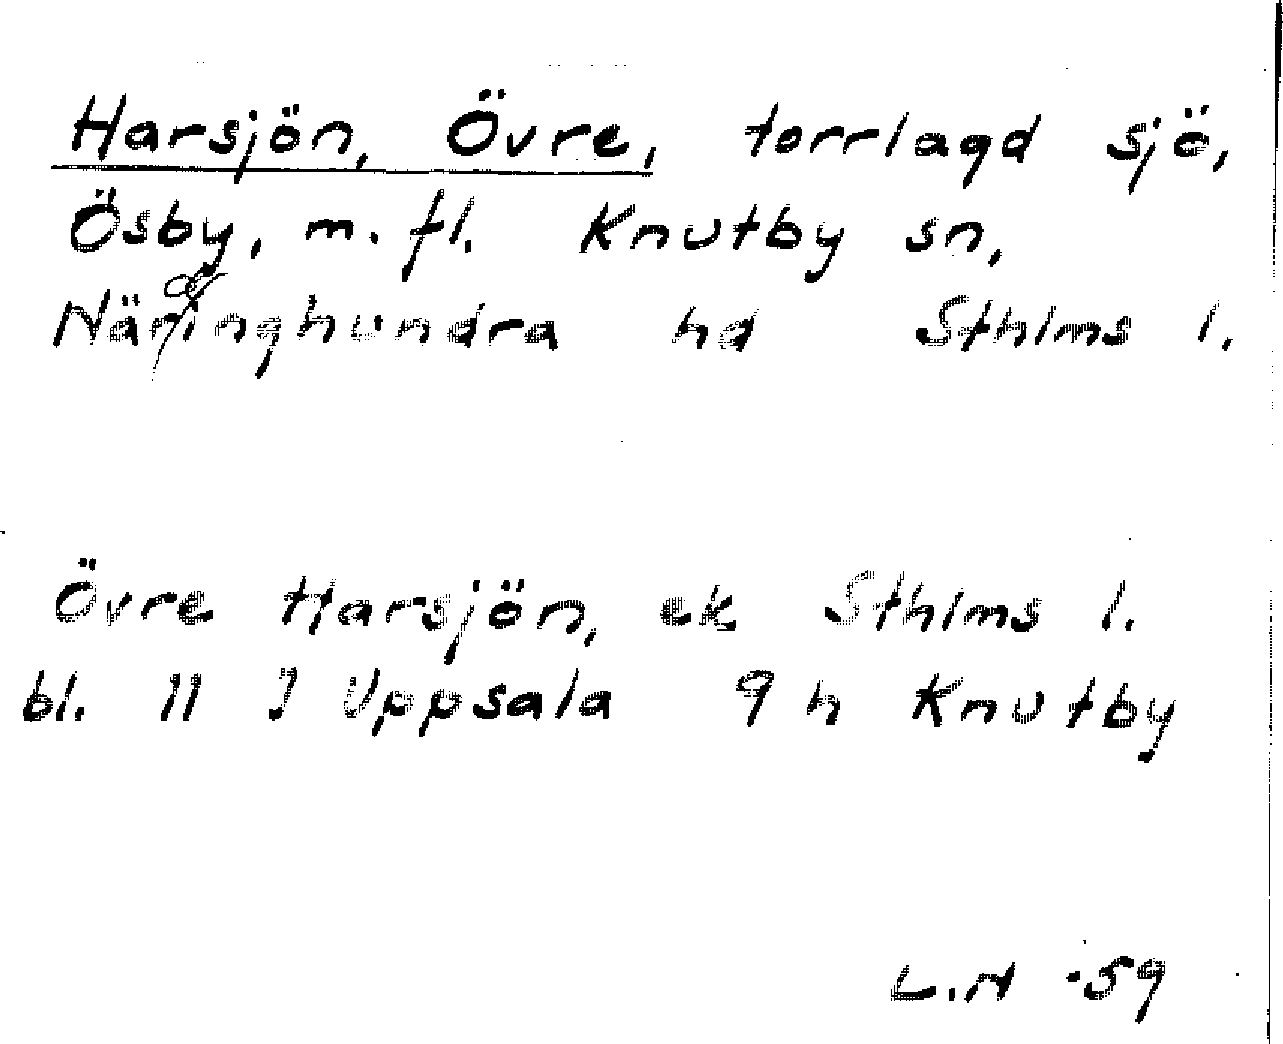 Harsjön, Övre, torrlagd sjö,
Ösby, m. fl. Knutby sn,
Närdinghundra hd Sthlms l.
Övre Harsjön, ek Sthlms l.
bl. 11 I Uppsala 9 h Knutby
L.H -59